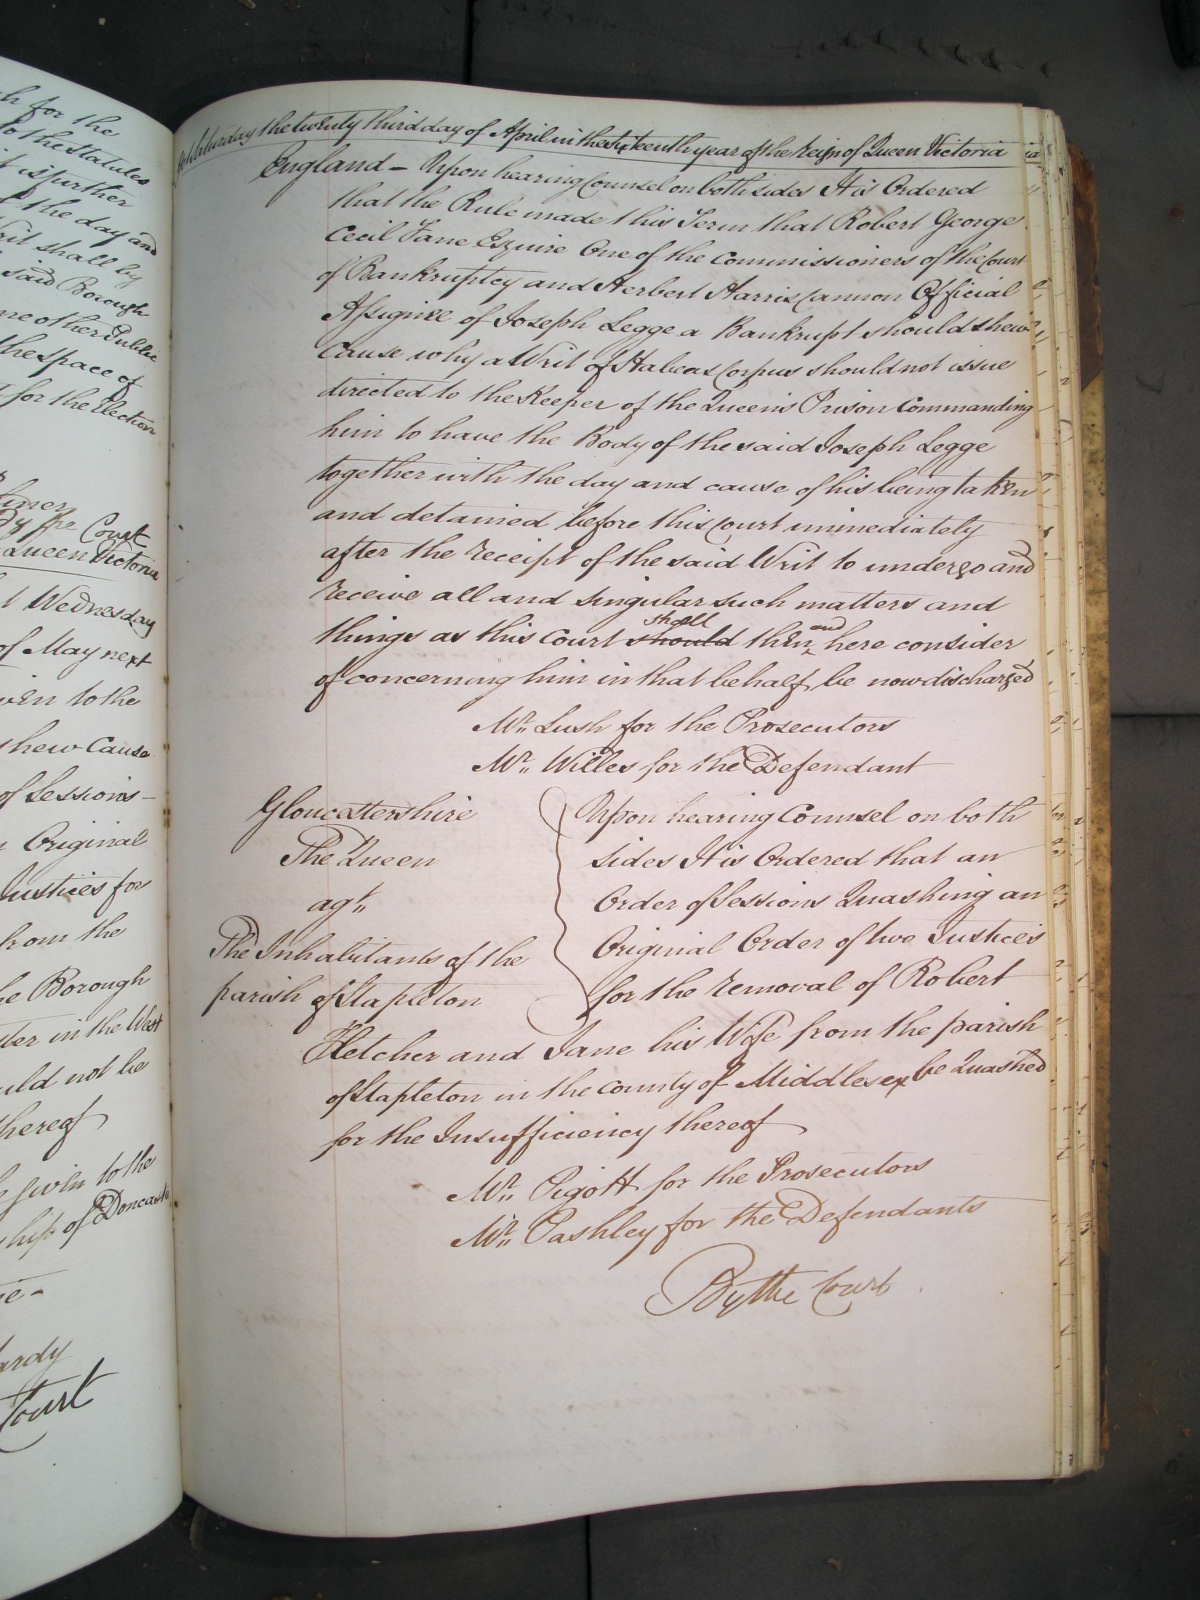 Saturday the twenty third day of April in the sixteenth year of the reign of Queen Victoria
England - Upon hearing Counsel on both sides It is Ordered
that the Rule made this Term that Robert George
Cecil Fane Esquire One of the Commissioners of the Court
of Bankruptcy and Herbert Harris Cannon Official
Assignee of Joseph Legge a Bankrupt should shew
Cause why a Writ of Habeas Corpus should not issue
directed to the Keeper of the Queen's Prison Commanding
him to have the Body of the said Joseph Legge
together with the day and cause of his being taken
and detained before this Court immediately
after the receipt of the said Writ to undergo and
Receive all and singular such matters and
things as this Court should shall then and here consider
of concerning him in that behalf be now discharged
Mr. Lush for the Prosecutors
Mr. Willes for the Defendant
Gloucestershire
The Queen
agt.
The Inhabitants of the
parish of Stapleton
Upon hearing Counsel on both
sides It is Ordered that an
Order of Sessions Quashing an
Original Order of two Justices
for the removal of Robert
Fletcher and Jane his Wife from the parish
of Stapleton in the County of Middlesex be Quashed
for the Insufficiency thereof
Mr. Pigott for the Prosecutors
Mr. Pashley for the Defendants
By the Court
for the
to the Statutes
is further
the day and
shall by
said Borough
other Public
the space of
for the Election
By the Court
Queen Victoria
Wednesday
of May next
to the
shew Cause
of Sessions -
Original
Justices for
from the
Borough
in the West
not be
thereof
given to the
of Doncaster
Court